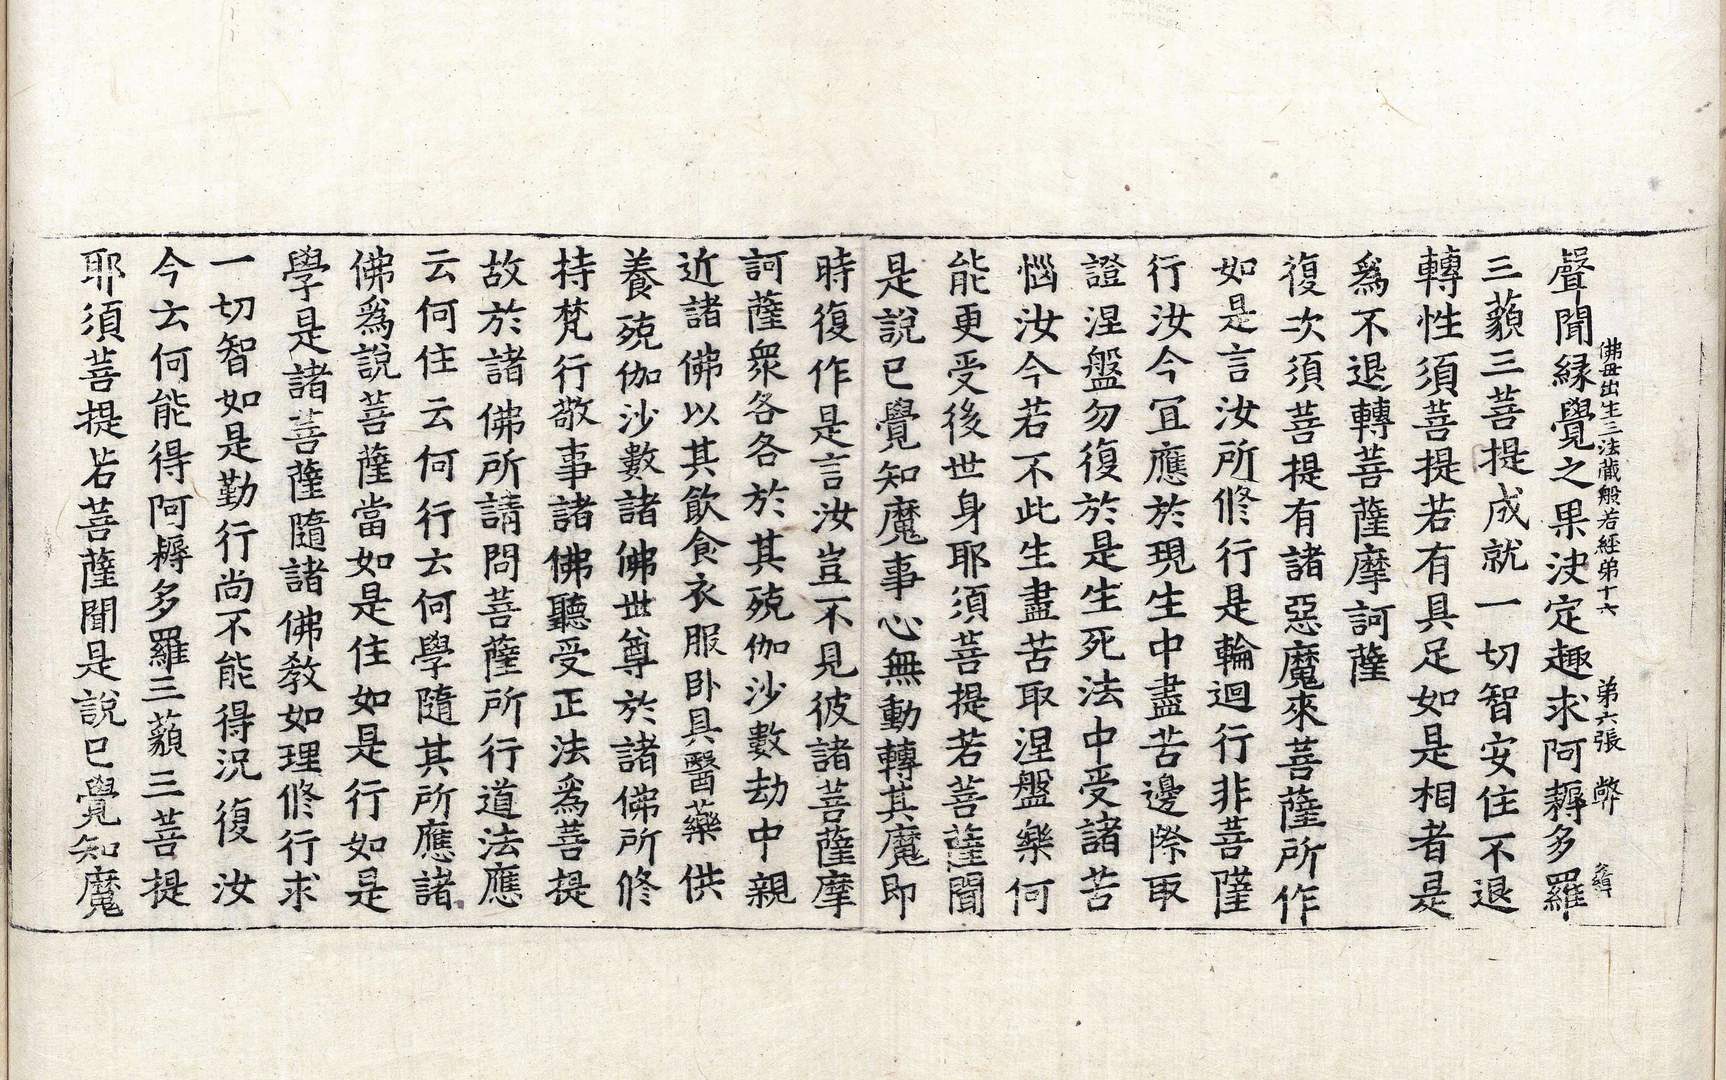 佛母出生三法藏般若經第十六　第六張　弊
聲聞緣覺之果決定趣求阿耨多羅
三藐三菩提成就一切智安住不退
轉性須菩提若有具足如是相者是
爲不退轉菩薩摩訶薩
復次須菩提有諸惡魔來菩薩所作
如是言汝所修行是輪迴行非菩薩
行汝今宜應於現生中盡苦邊際取
證涅盤勿復於是生死法中受諸苦
惱汝今若不此生盡苦取涅盤樂何
能更受後世身耶須菩提若菩薩聞
是說已覺知魔事心無動轉其魔即
時復作是言汝豈不見彼諸菩薩摩
訶薩衆各各於其殑伽沙數劫中親
近諸佛以其飲食衣服卧具醫藥供
養殑伽沙數諸佛世尊於諸佛所修
持梵行敬事諸佛聽受正法爲菩提
故於諸佛所請問菩薩所行道法應
云何住云何行云何學隨其所應諸
佛爲說菩薩當如是住如是行如是
學是諸菩薩隨諸佛教如理修行求
一切智如是勤行尚不能得況復汝
今云何能得阿耨多羅三藐三菩提
耶須菩提若菩薩聞是說已覺知魔